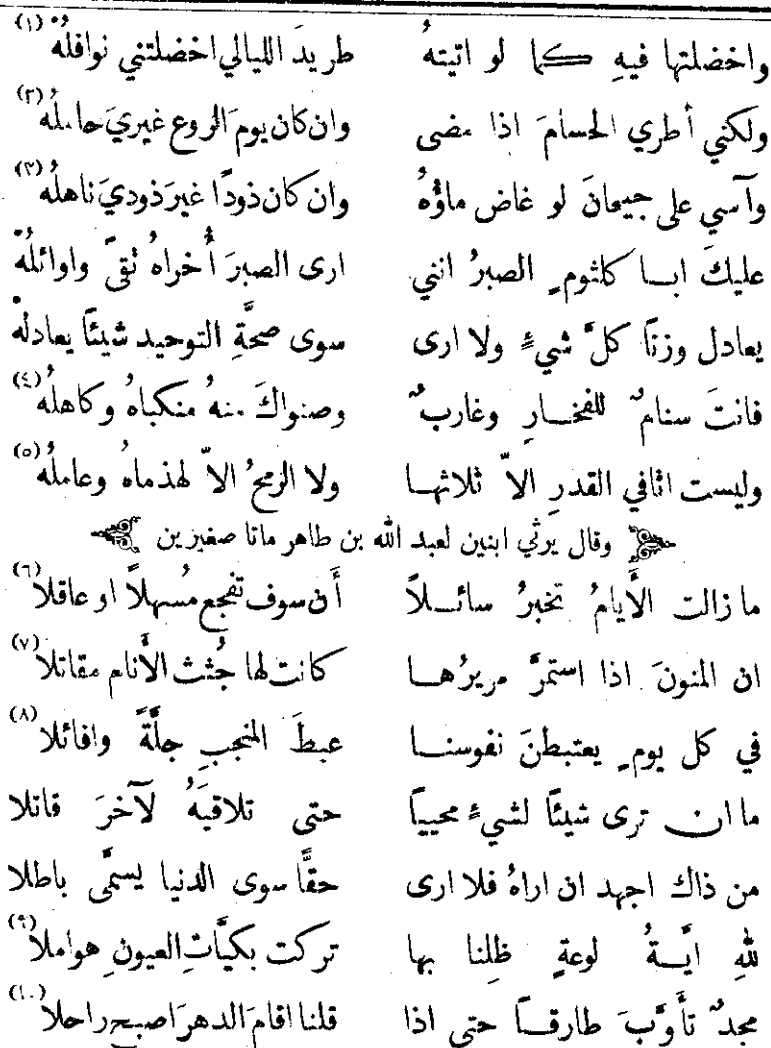 واخضلتها فيهِ كما لو اتيتهُ طريدَ الليالي اخضلتني نوافلُهْ (١)
ولكنني أُطري الحسامَ اذا مضى وان كان يومَ الروع غيريَ حاملُه (٢)
وآسي على جيحانَ لو غاض ماؤُهُ وان كان ذودًا غيرَ ذوديَ ناهلُه (٣)
عليكَ ابا كلثومٍ الصبرَ انني ارى الصبرَ أُخراهُ تقىً واوائلُهْ
يعادل وزنًا كلَّ شيءٍ ولا ارى سوى صحَّةِ التوحيد شيئًا يعادلُهْ
فانتَ سنامٌ للفخارِ وغاربٌ وصنواكَ منهُ منكباهُ وكاهلُه (٤)
وليست اثافي القدرِ الاَّ ثلاثها ولا الرمحُ الاَّ لهذماهُ وعاملُه (٥)
وقال يرثي ابنين لعبد الله بن طاهر ماتا صغيرين
ما زالت الأَيامُ تخبرُ سائلاً أَن سوف تفجع مُسهلاً او عاقلا (٦)
ان المنونَ اذا استمرَّ مريرُها كانت لها جُثث الأَنام مقاتلا (٧)
في كل يومٍ يعتبطنَ نفوسنا عبطَ المنجبِ جلَّةً وافائلا (٨)
ما ان ترى شيئًا لشيءٍ محييًا حتى تلاقيَهُ لآخرَ قاتلا
من ذاك اجهد ان اراهُ فلا ارى حقًّا سوى الدنيا يسمَّى باطلا
للهِ ايَّةُ لوعةٍ ظلنا بها تركت بكيَّاتِ العيونِ هواملا (٩)
مجدٌ تأَوَّبَ طارقًا حتى اذا قلنا اقامَ الدهرَ اصبح راحلا (١٠)